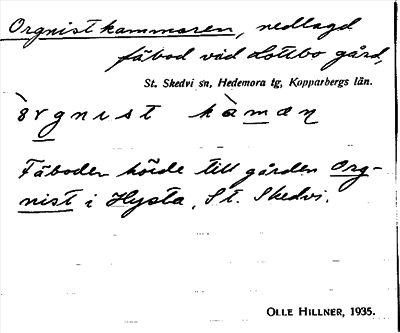 Orgnistkammaren, nedlagd
fäbod vid Lottbo gård,
St. Skedvi sn, Hedemora tg, Kopparbergs län.
Fäboden hörde till gården Org-
nist i Hysta, St. Skedvi.
OLLE HILLNER, 1935.